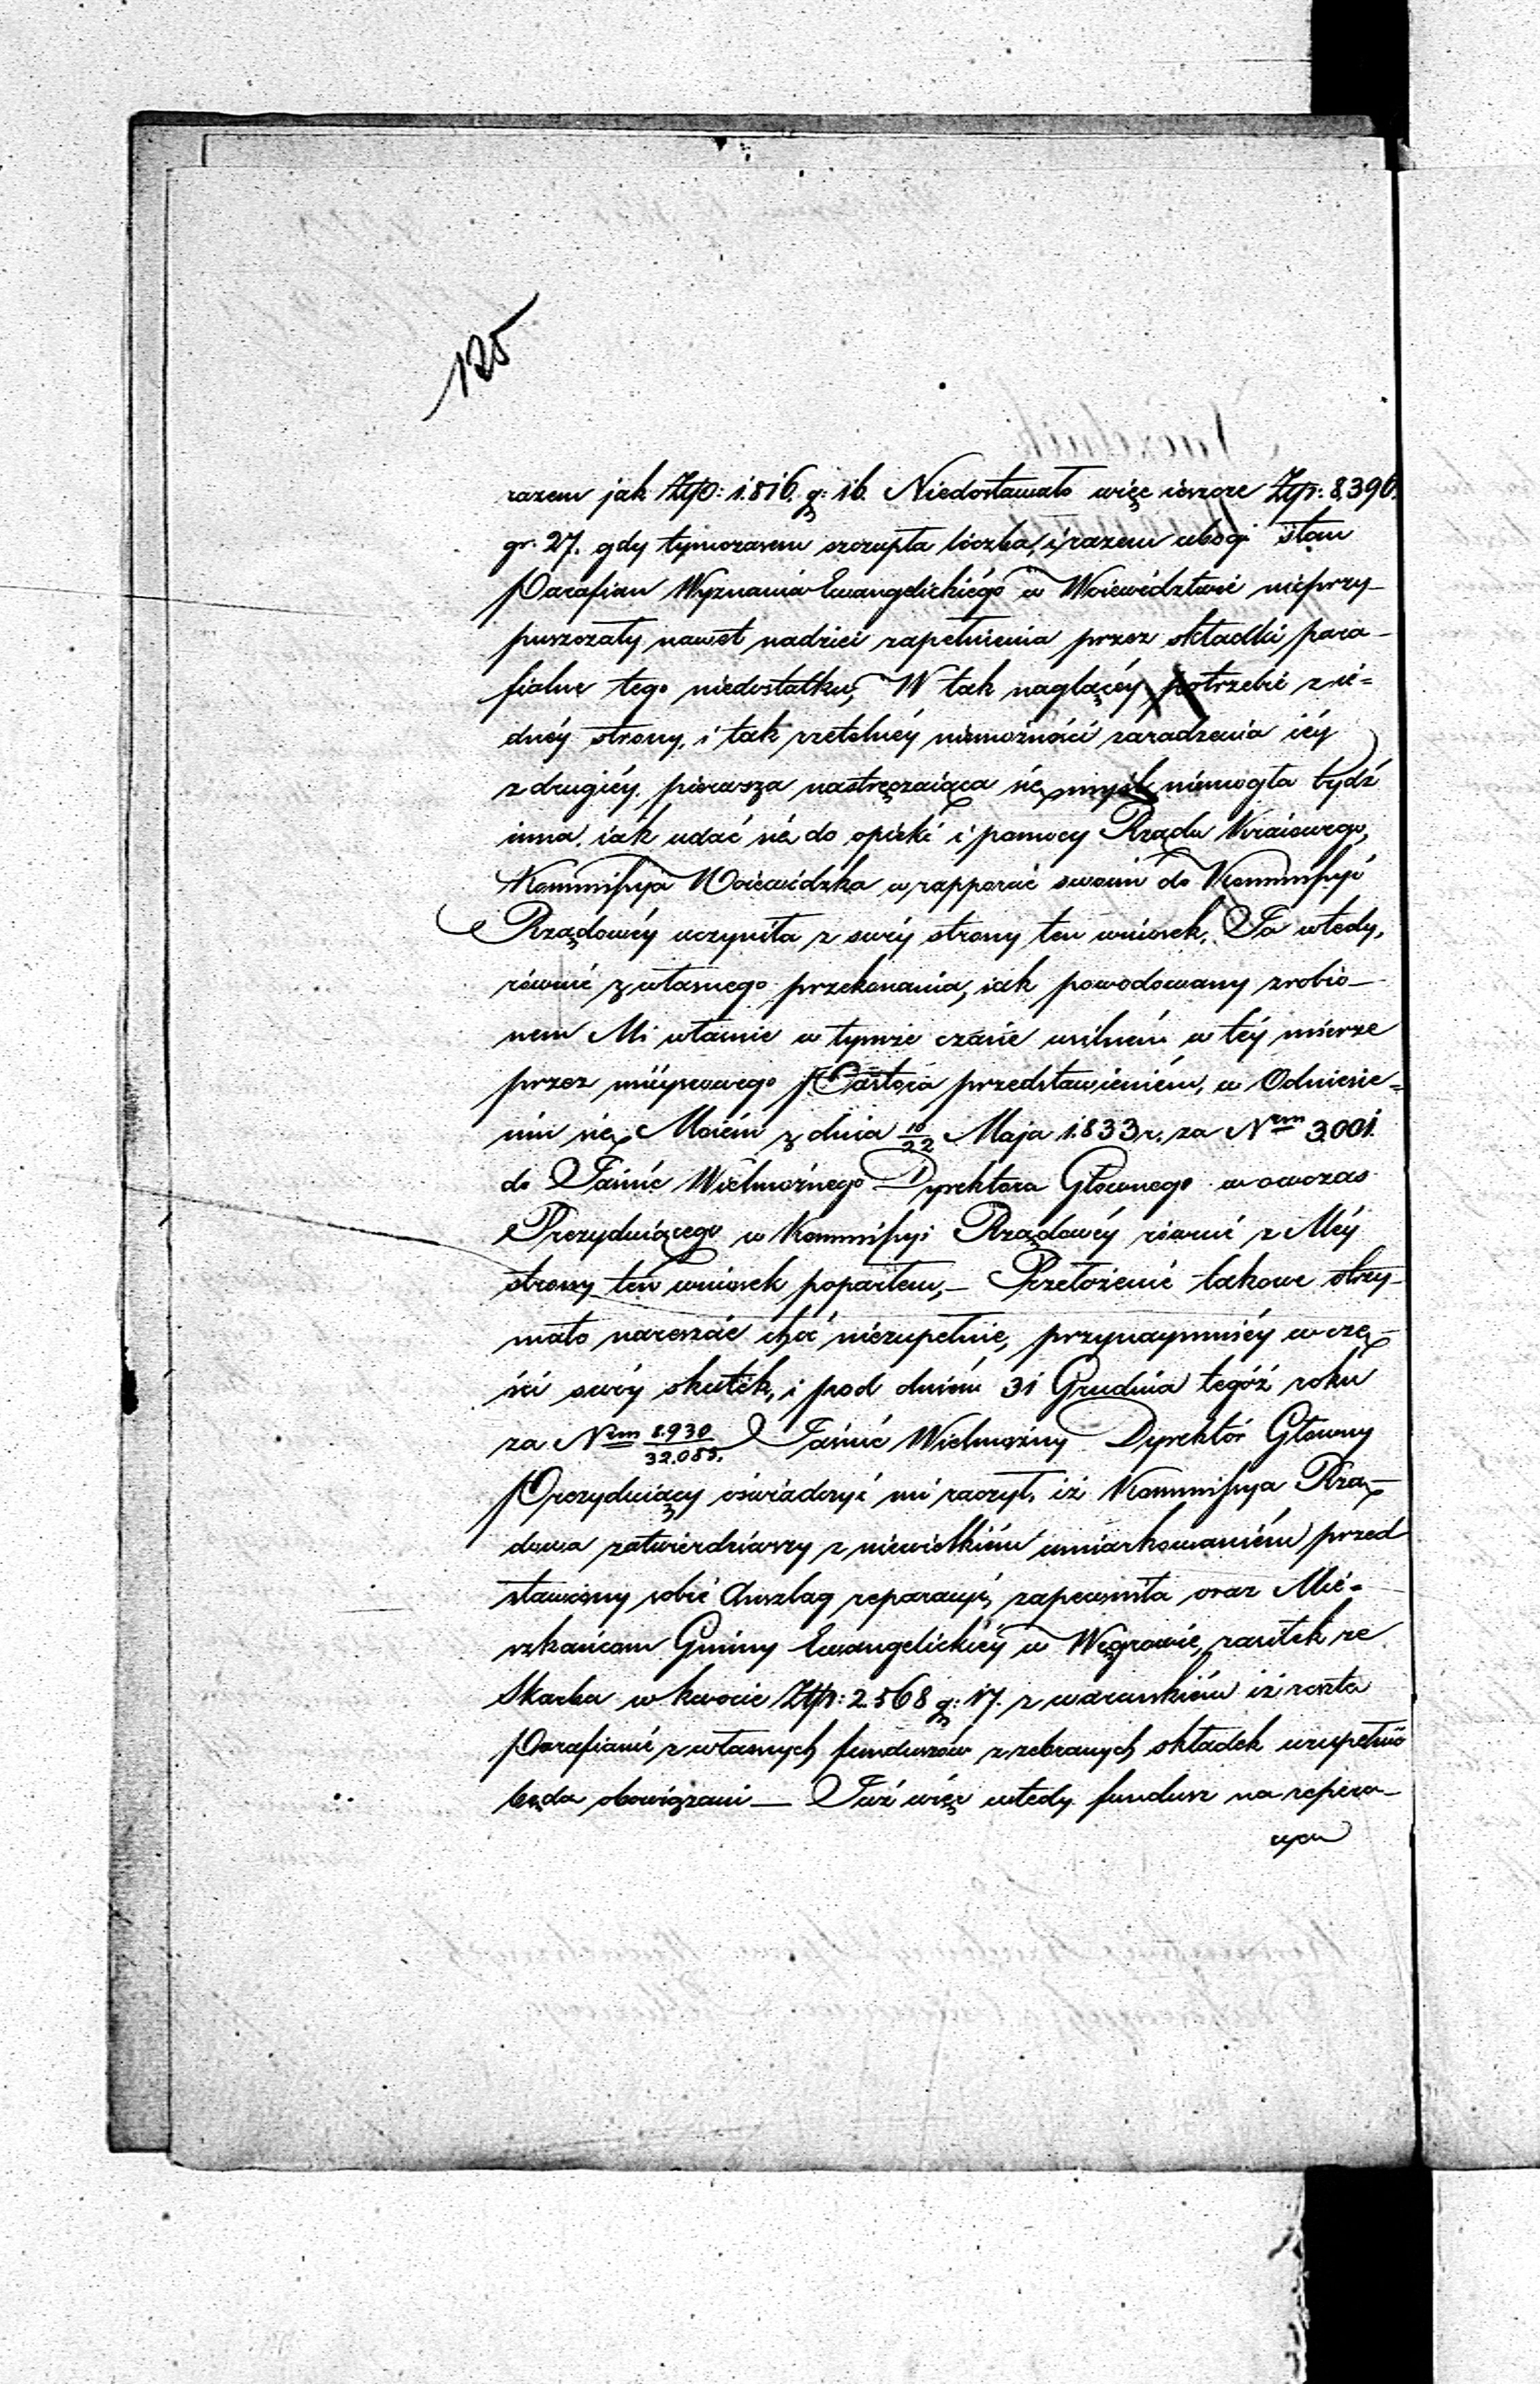 125
razem jak Złp: 1.816. g: 16. Niedostawało więc ieszcze Złp: 8,396.
gr. 27. gdy tymczasem szczupła liczba, i razem ubogi stan
Parafian Wyznania Ewangelickiégo w Woiewództwie nieprzy-
puszczały nawet nadziei zapełnienia przez składki para-
fialne tego niedostatku, W tak naglącéy potrzebie z ie-
dnéy strony, i tak rzetelnéy niemożności zaradzenia iéy
z drugiéy, pierwsza nastręczaiąca się myśl niemogła bydź
inna, iak udać się do opieki i pomocy Rządu Kraiowego,
Kommissyia Woiewódzka w rapporcie swoim do Kommissyi
Rządowéy uczyniła z swéy strony ten wniosek, Ja wtedy,
równie z własnego przekonania, iak powodowany zrobio-
nem Mi właśnie w tymże czasie usilném w téy mierze
przez mieyscowego Pastora przedstawieniém, w Odniesie-
niu się Moiém z dnia 10/22 Maja 1.833 r. za Nrm 3.001.
do Jaśnie Wielmożnego Dyrektora Głównego wowczas
Prezyduiącego w Kommissyi Rządowéy równie z Méy
strony ten wniosek poparłem,— Przełożenie takowe otrzy-
mało nareszcie choć niezupełnie, przynaymniéy w czę-
ści swóy skutek, i pod dniém 31 Grudnia tegóż roku
za Nrm 8.930/32.085. Jaśnie Wielmożny Dyrektór Głowny
Prezyduiący oświadczyć mi raczył, iż Kommissya Rzą-
dowa zatwierdziwszy z niewielkiém umiarkowaniém przed
stawiony sobie Anszlag reparacyi, zapewniła oraz Mie-
szkańcom Gminy Ewangelickiéy w Węgrowie, zasiłek ze
Skarbu w kwocie Złp: 2.568 g: 17. z warunkiém iż resztę
Parafianie z własnych funduszów z zebranych składek uzupełnić
będą obowiązani — Już więc wtedy fundusz na repera-
cyą